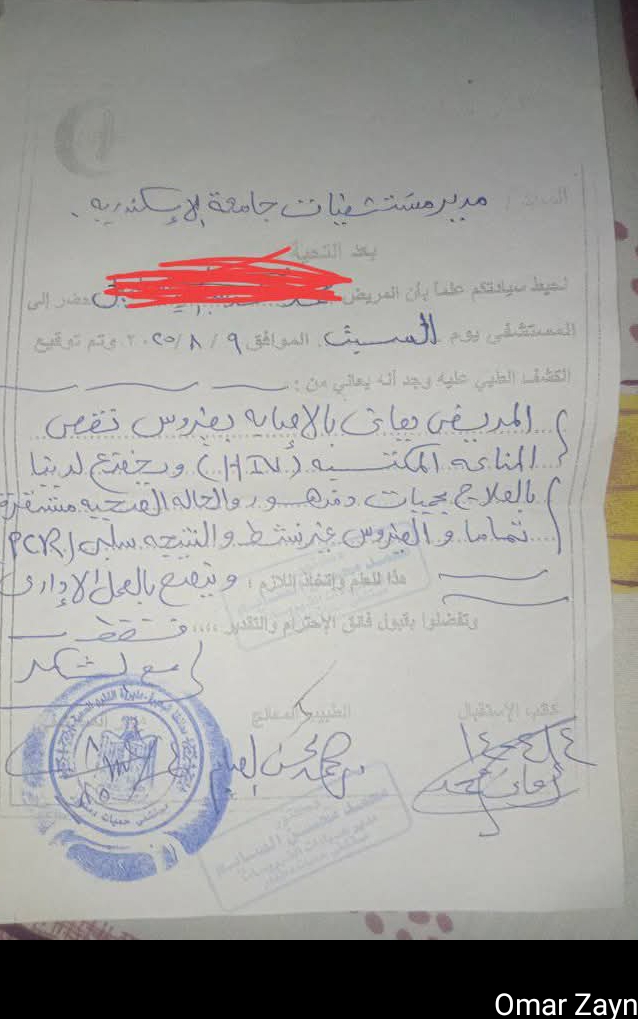 السيد / مدير مستشفيات جامعة الإسكندريه.
بعد التحية
نحيط سيادتكم علما بأن المريض حضر إلى
المستشفى يوم السبت الموافق ٩ / ٨ / ٢٠٢٥ وتم توقيع
الكشف الطبي عليه وجد أنه يعاني من :
المريض يعانى بالاصابه بفيروس نقص
المناعه المكتسبه (HIV) ويخضع لدينا
بالعلاج بحميات دمنهور والحاله الصحيه مستقرة
تماما و الفيروس غير نشط والنتيجه سلبى PCR
هذا للعلم وإتخاذ اللازم ، وينصح بالعمل الإدارى
وتفضلوا بقبول فائق الإحترام والتقدير ،،،، فقط
مع الشكر
كاتب الإستقبال الطبيب المعالج
Omar Zayn